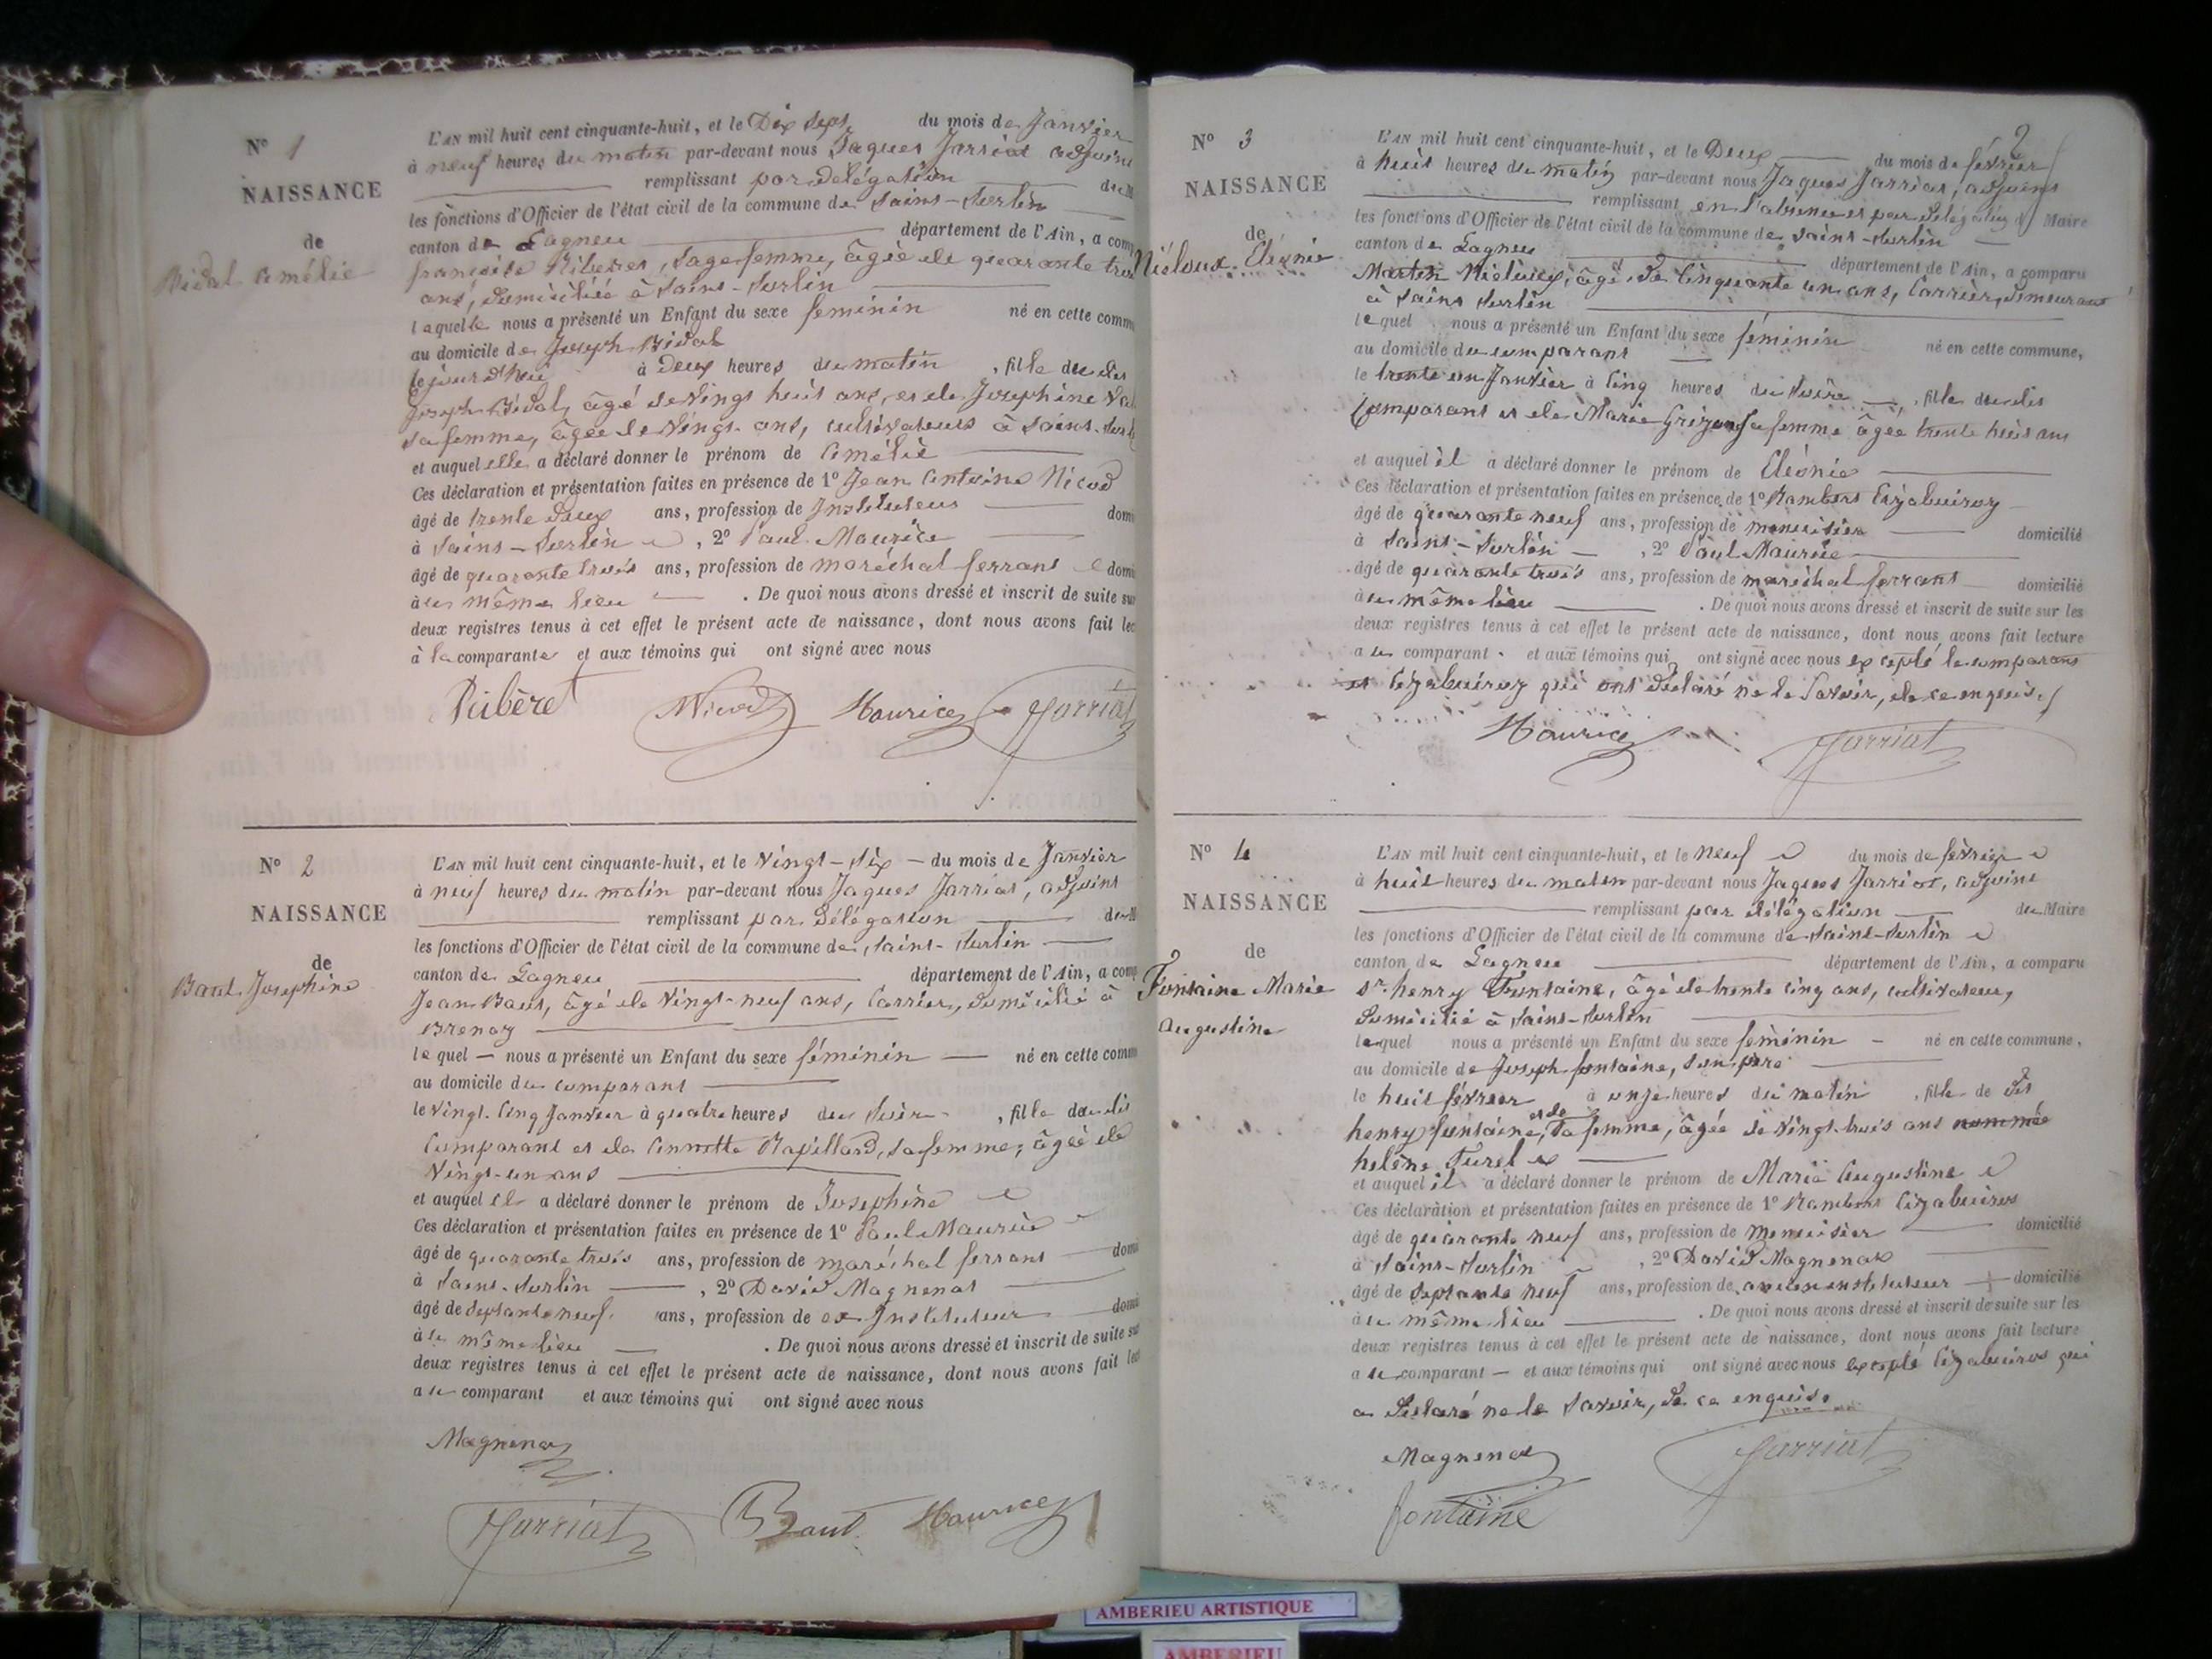 N° 1
NAISSANCE
de
Bidal Amélie
L'AN mil huit cent cinquante-huit, et le Dix sept du mois de Janvier
à neuf heures du matin par-devant nous Jaques Jarriat adjoint
remplissant par délégation du M
les fonctions d'Officier de l'état civil de la commune de Saint-Surlin
canton de Lagneu département de l'Ain, a comp
françoise Riberet, sage femme, âgée de quarante trois
ans, domiciliée à Saint-Surlin
laquelle nous a présenté un Enfant du sexe feminin né en cette comm
au domicile de Joseph Bidal
le jourd'hui à deux heures du matin , fille du dit
Joseph Bidal, âgé de vingt huit ans, et de Josephine
sa femme, âgée de vingt ans, cultivateurs à Saint-Surl
et auquel elle a déclaré donner le prénom de Amélie
Ces déclaration et présentation faites en présence de 1° Jean Antoine Nicod
âgé de trente deux ans, profession de Instituteur dom
à Saint-Surlin , 2° Paul Maurice
âgé de quarante trois ans, profession de maréchal ferrant domi
à le même lieu . De quoi nous avons dressé et inscrit de suite sur
deux registres tenus à cet effet le présent acte de naissance, dont nous avons fait lec
à la comparante et aux témoins qui ont signé avec nous
Ribèret Nicod Maurice Jarriat
N° 2
NAISSANCE
de
Baut Josephine
L'AN mil huit cent cinquante-huit, et le vingt-six du mois de Janvier
à neuf heures du matin par-devant nous Jaques Jarriat, adjoint
remplissant par délégation du M
les fonctions d'Officier de l'état civil de la commune de Saint-Surlin
canton de Lagneu département de l'Ain, a comp
Jean Baut, âgé de vingt-neuf ans, Carrier, domicilié à
Brenaz
le quel nous a présenté un Enfant du sexe féminin né en cette comm
au domicile du comparant
le vingt-cinq Janvier à quatre heures du soir , fille du dit
Comparant et de Annette Rapillard, sa femme, âgée de
vingt-un ans
et auquel il a déclaré donner le prénom de Josephine
Ces déclaration et présentation faites en présence de 1° Paul Maurice
âgé de quarante trois ans, profession de maréchal ferrant domi
à Saint-Surlin , 2° David Magnenat
âgé de septante neuf ans, profession de ex Instituteur domi
à le même lieu . De quoi nous avons dressé et inscrit de suite sur
deux registres tenus à cet effet le présent acte de naissance, dont nous avons fait lect
a le comparant et aux témoins qui ont signé avec nous
Magnenat
Jarriat Baut Maurice
2
N° 3
NAISSANCE
de
Niéloux Cléonie
L'AN mil huit cent cinquante-huit, et le Deux du mois de février
à huit heures du matin par-devant nous Jaques Jarriat, adjoint
remplissant en l'absence et par délégation du Maire
les fonctions d'Officier de l'état civil de la commune de Saint-Surlin
canton de Lagneu département de l'Ain, a comparu
Martin Niéloux, âgé de Cinquante un ans, Carrier, demeurant
à Saint Surlin
le quel nous a présenté un Enfant du sexe féminin né en cette commune,
au domicile du comparant
le trente un Janvier à Cinq heures du Soir , fille du dit
Comparant et de Marie sa femme âgée trente huit ans
et auquel il a déclaré donner le prénom de Cléonie
Ces déclaration et présentation faites en présence de 1° Rambert
âgé de quarante neuf ans, profession de menuisier domicilié
à Saint-Surlin , 2° Paul Maurice
âgé de quarante trois ans, profession de maréchal ferrant domicilié
à le même lieu . De quoi nous avons dressé et inscrit de suite sur les
deux registres tenus à cet effet le présent acte de naissance, dont nous avons fait lecture
a le comparant et aux témoins qui ont signé avec nous excepté le comparant
et qui ont déclaré ne le Savoir, de ce enquis.
Maurice Jarriat
N° 4
NAISSANCE
de
Funtaine Marie
Augustine
L'AN mil huit cent cinquante-huit, et le neuf du mois de février
à huit heures du matin par-devant nous Jaques Jarriat, adjoint
remplissant par délégation du Maire
les fonctions d'Officier de l'état civil de la commune de Saint-Surlin
canton de Lagneu département de l'Ain, a comparu
Sr. henry Funtaine, âgé de trente cinq ans, cultivateur,
domicilié à Saint-Surlin
lequel nous a présenté un Enfant du sexe féminin né en cette commune,
au domicile de Joseph funtaine, son père
le huit février à onze heures du matin , fille de dit
henry funtaine, et de sa femme, âgée de vingt-trois ans nommée
helène Turel
et auquel il a déclaré donner le prénom de Marie Augustine
Ces déclaration et présentation faites en présence de 1° Rambert
âgé de quarante neuf ans, profession de Menuisier domicilié
à Saint-Surlin , 2° David Magnenat
âgé de septante neuf ans, profession de ancien instituteur domicilié
à le même lieu . De quoi nous avons dressé et inscrit de suite sur les
deux registres tenus à cet effet le présent acte de naissance, dont nous avons fait lecture
a le comparant et aux témoins qui ont signé avec nous excepté qui
a déclaré ne le Savoir, de ce enquis.
Magnenat Jarriat
fontaine
AMBERIEU ARTISTIQUE
AMBERIEU